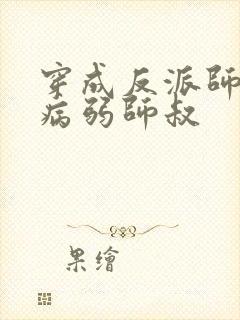 穿成反派師
病弱師叔
果繪